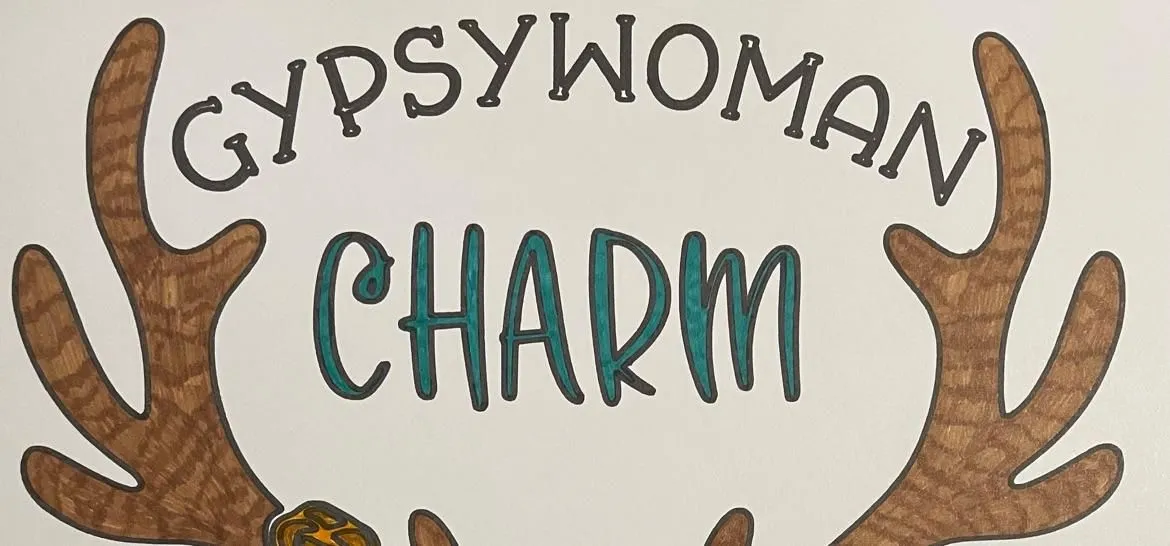 GYPSYWOMAN
CHARM